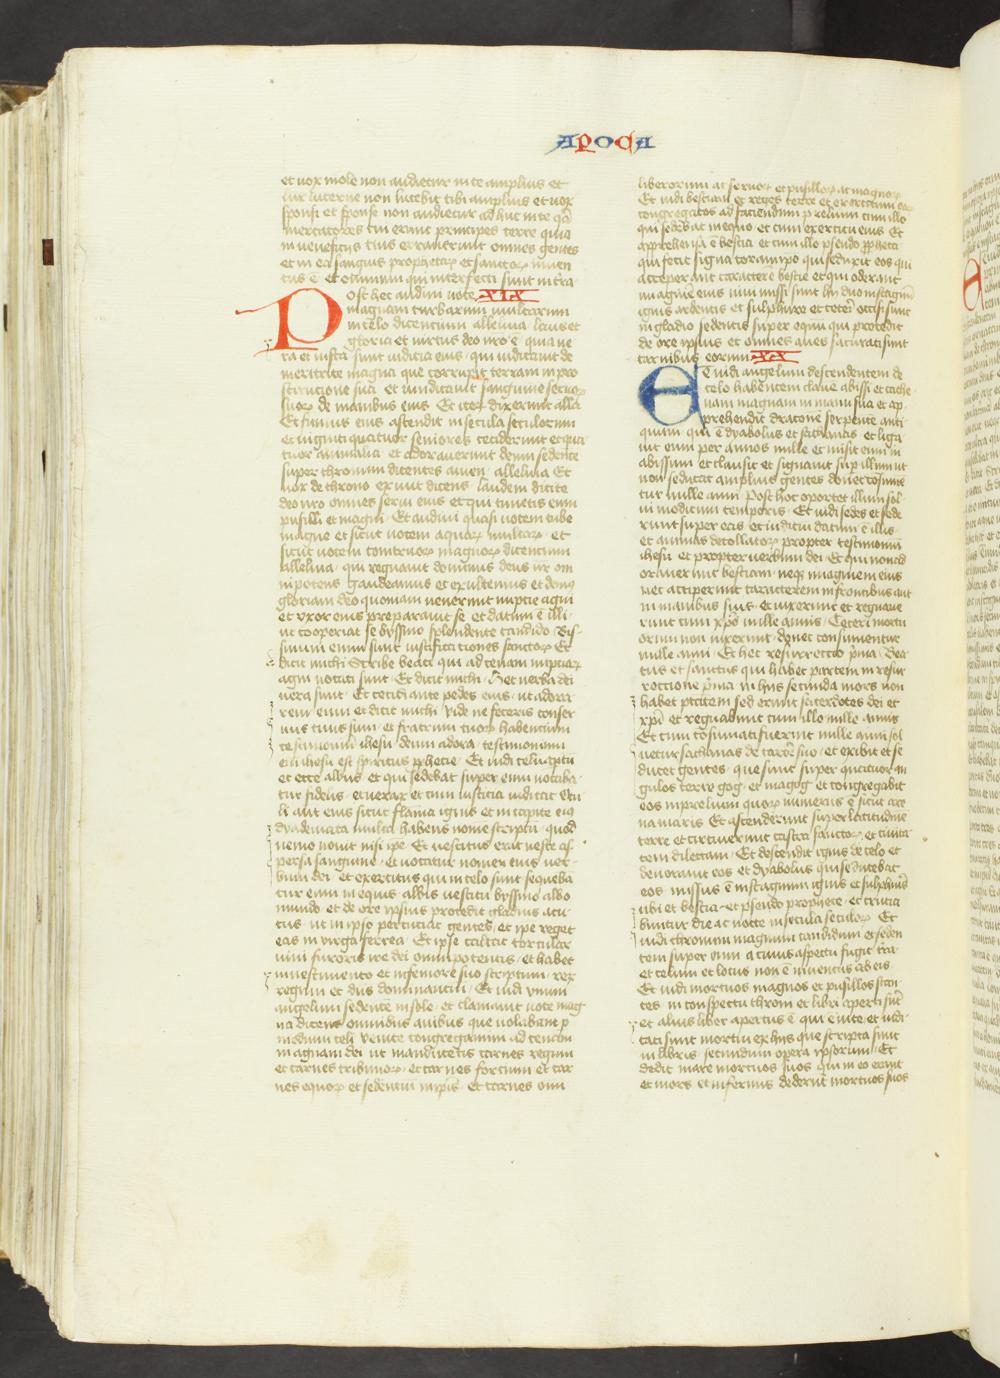 APOCA
et vox mole non audietur in te amplius et
lux lucerne non lucebit tibi amplius et vox
sponsi et sponse non audietur adhuc in te q̄
mercatores tui erant principes terre quia
in veneficiis tuis erraverunt omnes gentes
et in ea sanguis prophetaꝝ et sanctoꝝ inven
tus ē et omnium qui interfecti sunt in tr̄a
Post hec audivi vocē XIX
magnam turbarum multarum
in celo dicentium alleluia laus et
gloria et virtus deo nr̄o ē quia ve
ra et iusta sunt iudicia eius qui iudicavit de
meretrice magna que corrupit terram in pro
stitucione sua et vindicavit sanguinem servoꝝ
suoꝝ de manibus eius Et iteꝝ dixerunt alla
Et fumus eius ascendit in secula seculorum
et viginti quatuor seniores ceciderunt et qua
tuor animalia et adoraverunt deum sedente
super thronum dicentes amen alleluia Et
vox de throno exivit dicens laudem dicite
deo nr̄o omnes servi eius et qui timetis eum
pusilli et magni Et audivi quasi vocem tube
magne et sicut vocem aquaꝝ multaꝝ et
sicut vocem tonitruoꝝ magnoꝝ dicentium
alleluia qui regnavit dominus deus nr̄ om
nipotens gaudeamus et exultemus et dem9
gloriam deo quoniam venerunt nupcie agni
et uxor eius preparavit se et datum ē illi
ut cooperiat se byssino splendente candido Bis
sinum enim sunt iustificaciones sanctoꝝ Et
dicit michi Scribe beati qui ad cenam nupciaꝝ
agni vocati sunt Et dicit michi Hec verba dei
vera sunt Et cecidi ante pedes eius ut adora
rem eum et dicit michi Vide ne feceris conser
vus tuus sum et fratrum tuoꝝ habentium
testimoniū ihesu deum adora testimonium
enī ihesu est spiritus ꝓphecie Et vidi celū aptū
et ecce albus et qui sedebat super eum vocaba
tur fidelis et verax et cum iusticia iudicat Ocu
li aut eius sicut flāma ignis et in capite ei9
dyademata multa habens nomē scriptū quod
nemo novit nisi ipe Et vestitus erat veste as
persa sanguine Et vocatur nomen eius ver
bum dei et exercitus qui in celo sunt sequeba
tur eum in equis albis vestiti byssino albo
mundo et de ore ipsius procedit gladius acu
tus ut in ipso percuciat gentes et ipe reget
eas in virga ferrea Et ipse calcat torcular
vini furoris ire dei omnipotentis et habet
in vestimento et in femore suo scriptum rex
regum et dn̄s dominantiū Et vidi unum
angelum sedentē in sole et clamavit voce mag
na dicens omnibus avibus que volabant ꝑ
medium celi Venite congregamini ad cenam
magnam dei ut manducetis carnes regum
et carnes tribunoꝝ et carnes fortium et car
nes equoꝝ et sedentiū in ipis et carnes omī
liberorum ac servoꝝ et pusilloꝝ ac magnoꝝ
Et vidi bestiam et reges terre et exercitum eoꝝ
congregatos ad faciendum prelium cum illo
qui sedebat in equo et cum exercitu eius Et
apprehensa ē bestia et cum illo pseudo ꝓpheta
qui fecit signa coram ipo qui seduxit eos qui
acceperant caracterē bestie et qui adorant
imaginē eius vivi missi sunt hii duo in stagnū
ignis ardentis et sulphure et ceteri occisi sunt
in gladio sedentis super equū qui procedit
de ore ipsius et omnes aves saturati sunt
carnibus eorum XX
Et vidi angelum descendentem de
celo habentem clavē abissi et cathe
nam magnam in manu sua et ap
prehendit draconē serpentē anti
quum qui ē dyabolus et sathanas et liga
vit eum per annos mille et misit eum in
abissum et clausit et signavit suꝑ illum ut
non seducat amplius gentes donec cōsume
tur mille anni Post hoc oportet illum sol
vi modicum temporis Et vidi sedes et sede
runt super eas et iudiciū datum ē illis
et animas decollatoꝝ propter testimoniū
ihesu et propter verbum dei Et qui non ad
oraverunt bestiam neqꝫ imaginem eius
nec acciperunt caracterem in frontibus aut
in manibus suis et vixerunt et regnave
runt cum xp̄o mille annis Ceteri mortu
orum non vixerunt donec consumentur
mille anni Et hec resurrectio p̄ma Bea
tus et sanctus qui habet partem in resur
rectione p̄ma in hiis secunda mors non
habet p̄tatem sed erunt sacerdotes dei et
xp̄i et regnabunt cum illo mille annis
Et cum cōsumati fuerint mille anni sol
vetur sathanas de carcere suo et exibit et se
ducet gentes que sunt super quatuor an
gulos terre gog et magog et congregabit
eos in prelium quoꝝ numerus ē sicut are
na maris Et ascenderunt super latitudinē
terre et circuierunt castra sanctoꝝ et civita
tem dilectam Et descendit ignis de celo et
devoravit eos et dyabolus qui seducebat
eos missus ē in stagnum ignis et sulphuris
ubi et bestia et pseudo prophete et crucia
buntur die ac nocte in secula seculoꝝ Et
vidi thronum magnum candidum et seden
tem super eum a cuius aspectu fugit tr̄a
et celum et locus non ē inventus ab eis
Et vidi mortuos magnos et pusillos stan
tes in conspectu throni et libri aperti sūt
et alius liber apertus ē qui ē vite et iudi
cati sunt mortui ex hiis que scripta sunt
in libris secundum opera ipsorum Et
dedit mare mortuos suos qui in eo erant
et mors et infernus dederunt mortuos suos